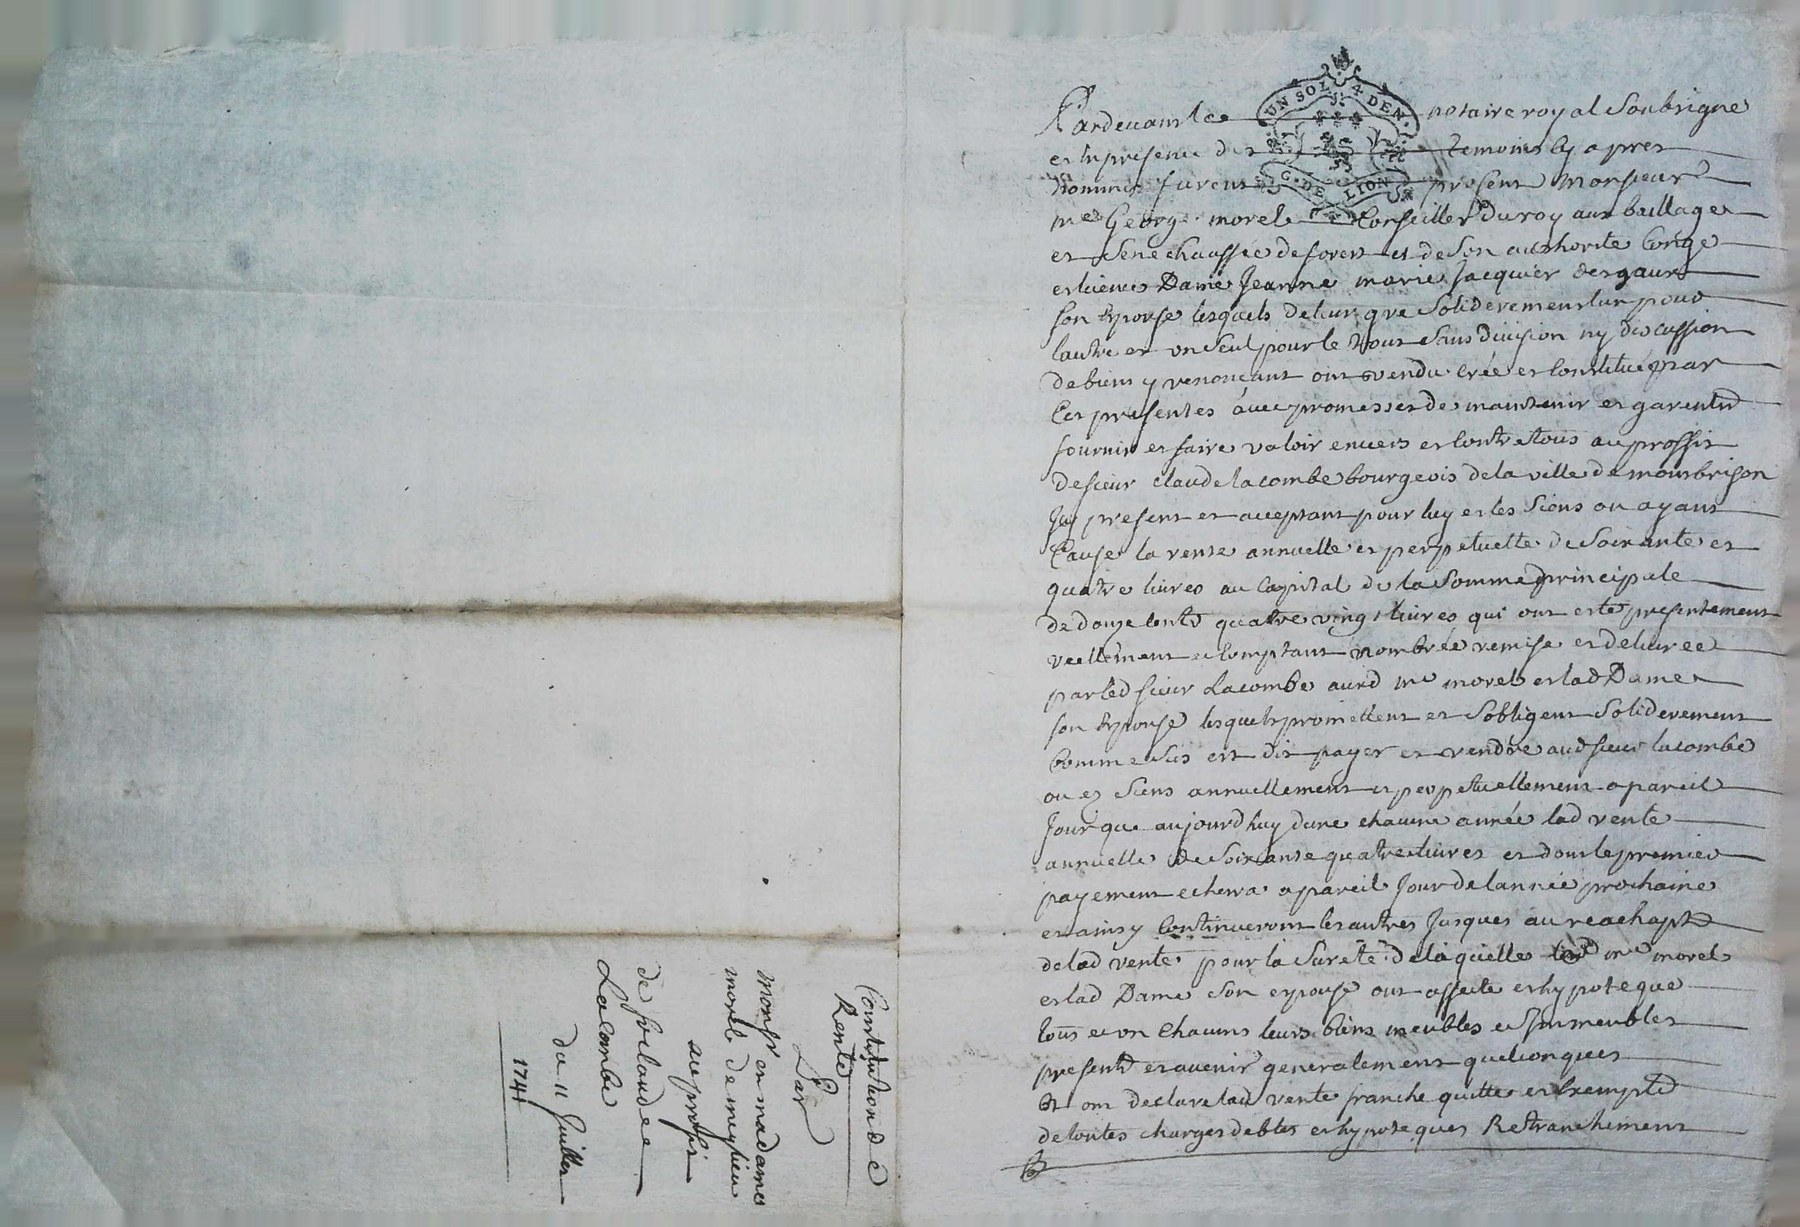 UN SOL. 4 DEN.
G. DE LION
Pardevant le notaire royal Soubsigné
et en presence des temoins cy apres
nommés furent present Monsieur
me George morel Conseiller du roy aux baillage
et Senechaussée de forest et de son authorité congé
et licence Dame Jeanne marie Jacquier
son Epouse lesquels de leur gré Soliderement lun pour
lautre et un Seul pour le tout Sans division ny discussion
de biens y renonçant ont vendu créé et Constitué par
Ces presentes avec promesses de maintenir et garentir
fournir et faire valoir envers et contre tous au proffit
de sieur claude lacombe bourgeois de la ville de montbrison
Icy present et acceptant pour luy et les Siens ou ayant
Cause la rente annuelle et perpetuelle de Soixante et
quatre livres au Capital de la Somme principale
de douze cents quatre vingt livres qui ont esté presentement
reellement et Comptant nombrée remise et delivrée
par led sieur Lacombe aud me morel et lad Dame
son Epouse lesquels promettent et Sobligent Soliderement
Comme dessus est dit payer et rendre aud sieur lacombe
ou es Siens annuellement et perpetuellement a pareil
Jour que aujourdhuy dune chacune année lad rente
annuelle de Soixante quatre livres et dont le premier
payement echerra a pareil Jour de lannée prochaine
et ainsy Continueront les autres Jusques au reachapt
de lad rente pour la Sureté de laquelle led me morel
et lad Dame Son epouse ont affecté et hypoteque
tous et un Chacuns leurs biens meubles et Immeubles
presents et avenir generalement quelconques
Et ont declaré lad rente franche quitte et Exempte
de toutes charges debtes et hypoteques Retranchement
Constitution de
Rente
Par
Monsr et madame
morel de
au proffit
de sr claude
Lacombe
du 11 Juillet
1741